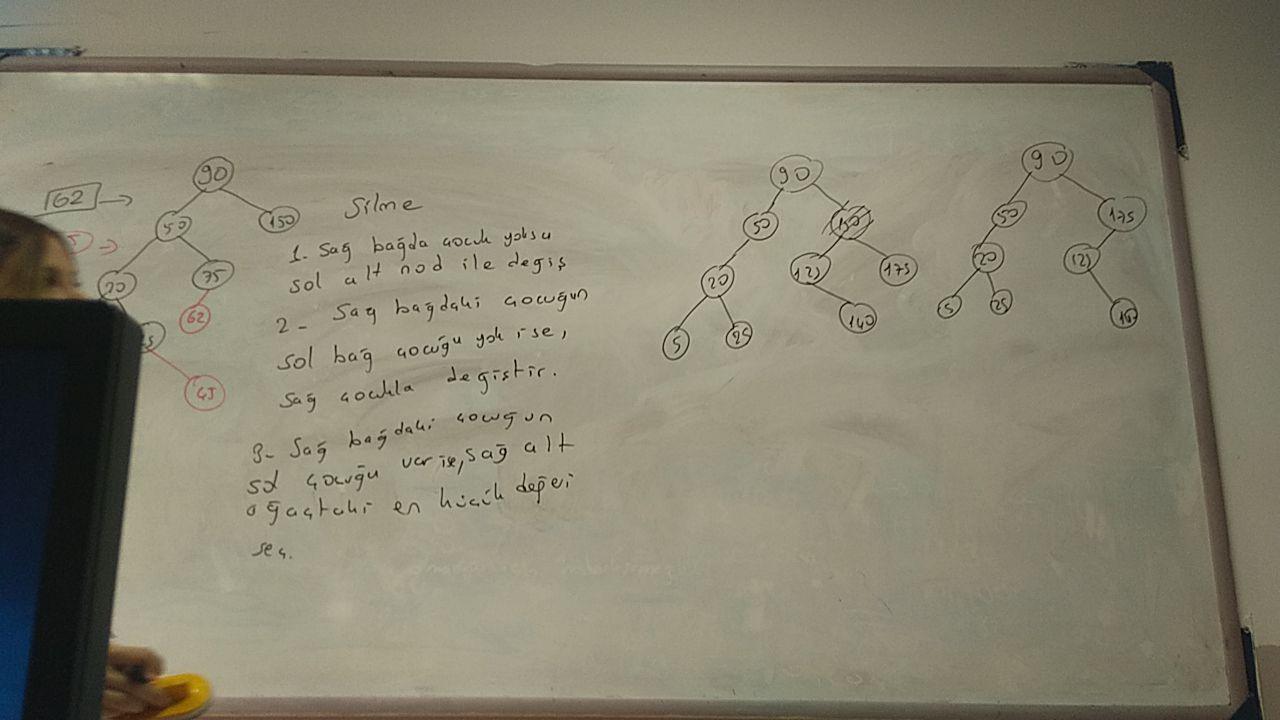 62 →
90
50
150
20
75
62
45
Silme
1. Sağ bağda çocuk yoksa
sol alt nod ile değiş
2- Sağ bağdaki çocuğun
sol bağ çocuğu yok ise,
Sağ çocukla değiştir.
3- Sağ bağdaki çocuğun
sol çocuğu var ise, sağ alt
ağaçtaki en küçük değeri
seç.
90
50
150
20
125
175
5
25
140
90
50
175
20
125
5
25